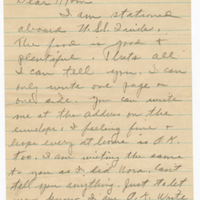 Dear Mom
I am stationed
aboard U.S.S.
The food is good &
plentiful. Thats all
I can tell you. I can
only write one page on
one side. You can write
me at the address on the
envelope. I feeling fine &
hope every at home is O.K.
too. I am writing the same
to you as I did Nora. Can't
tell you anything. Just to let
I am O.K. Write